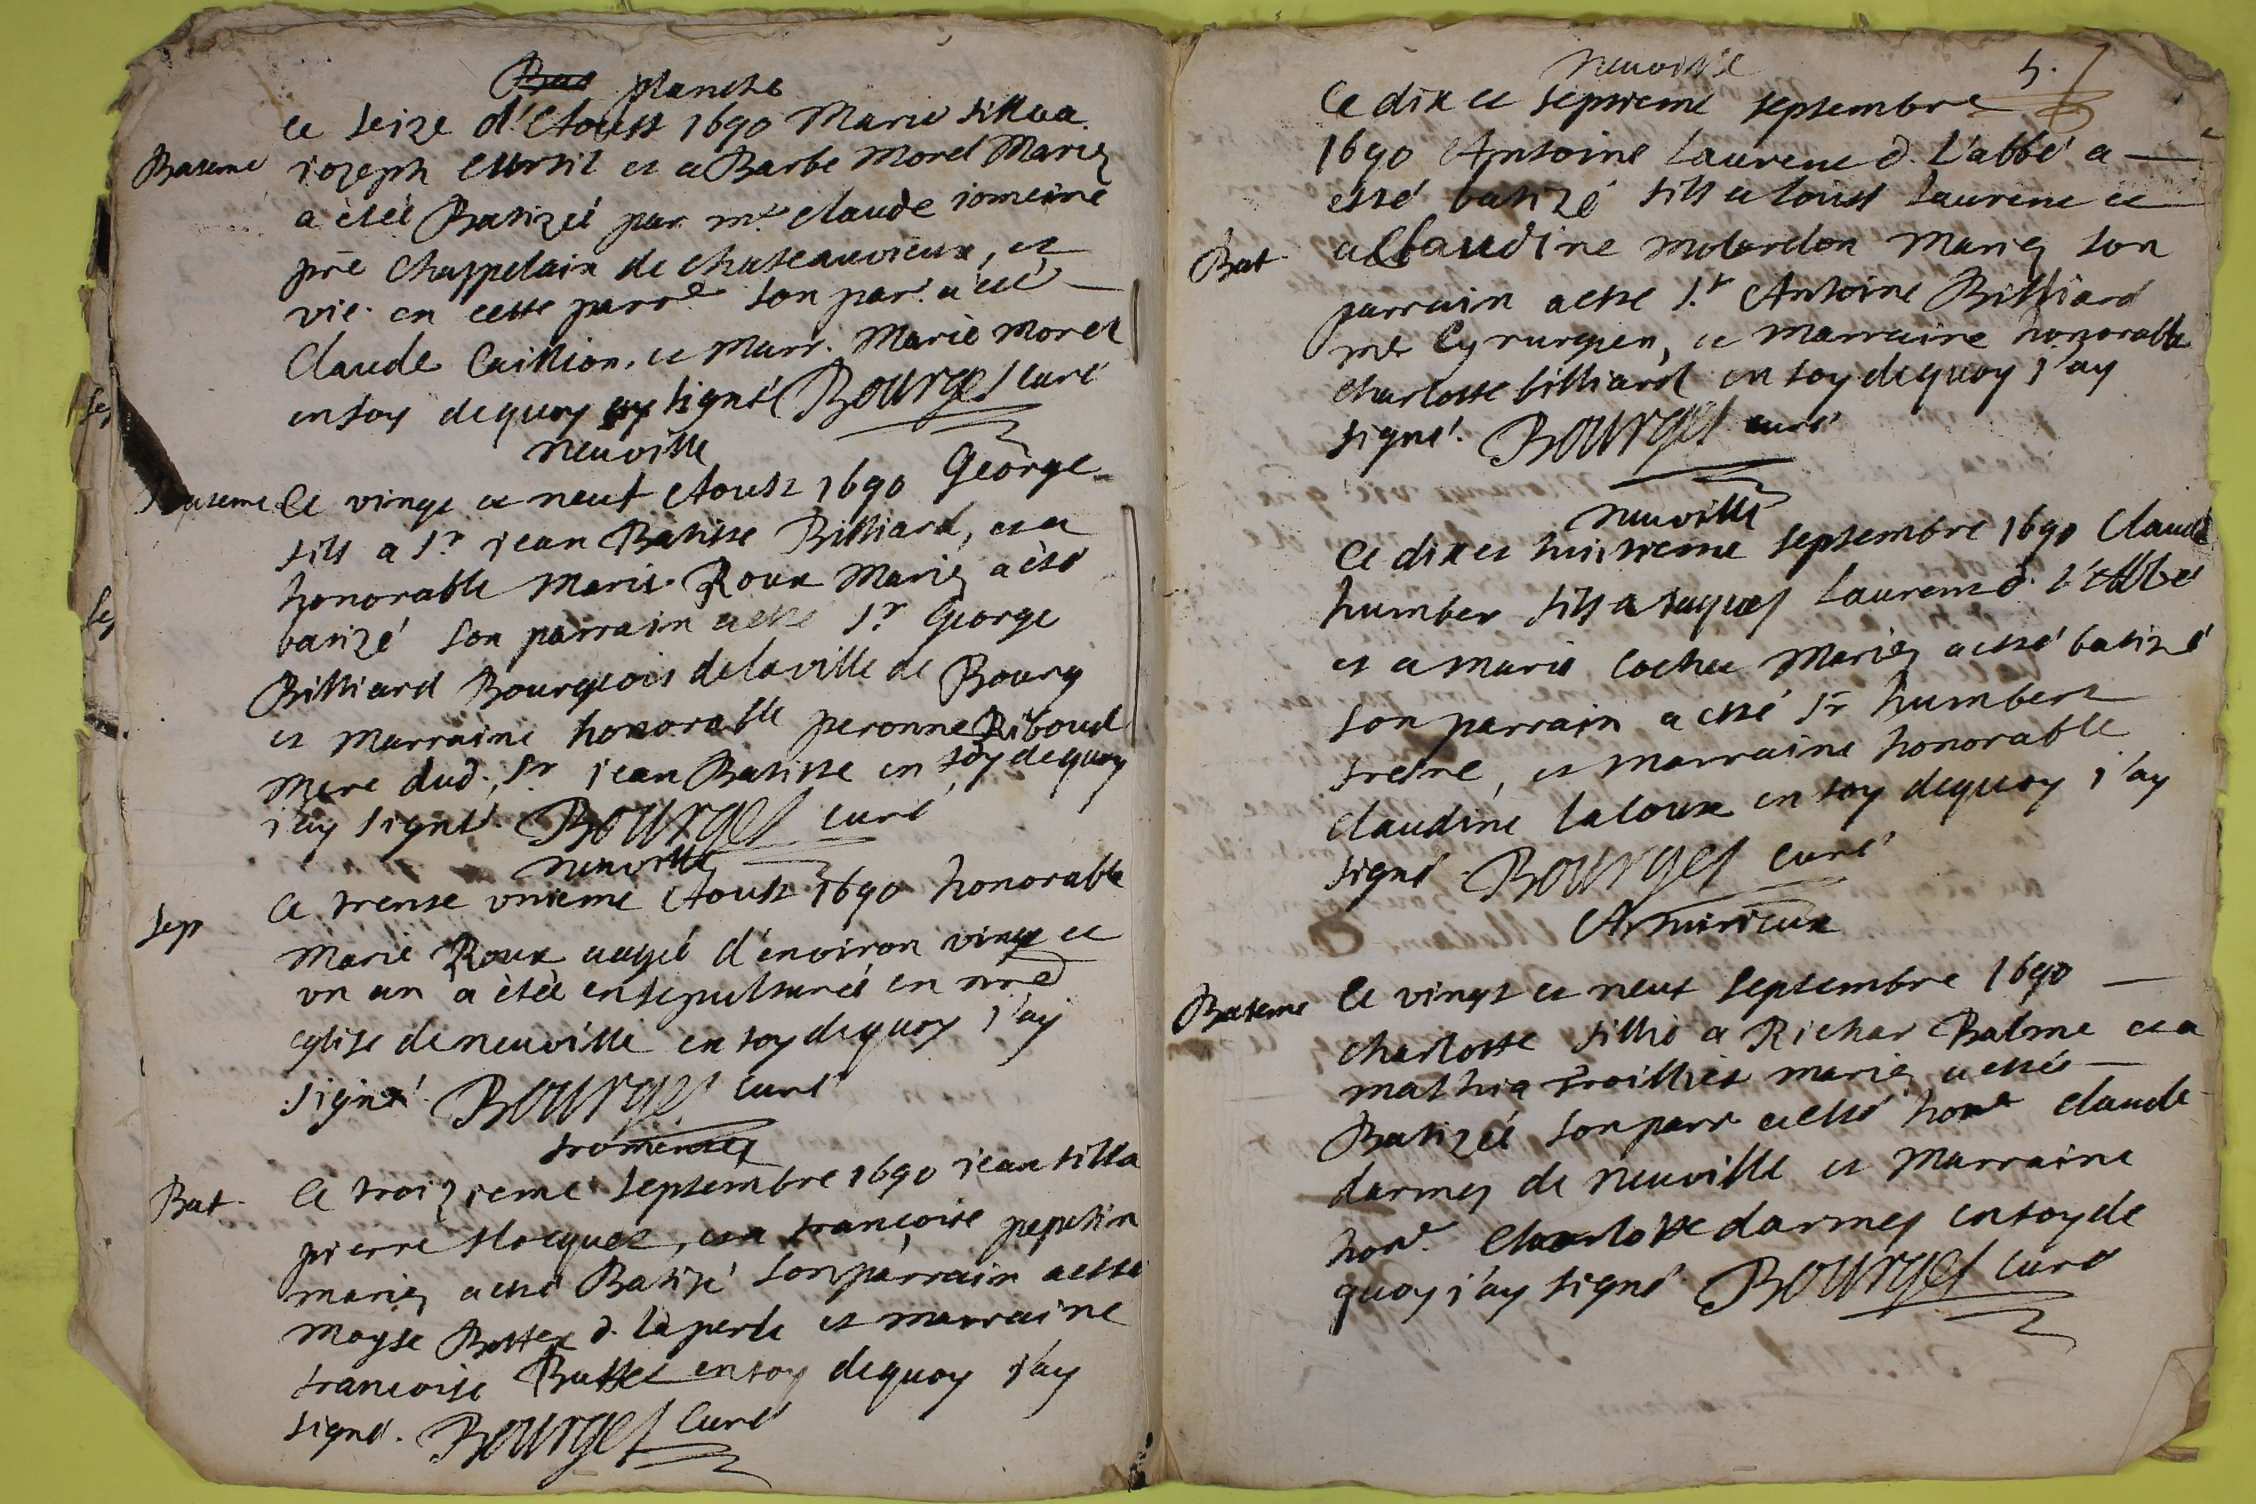 planche
Ce seize d'Aoust 1690 Marie fille a
Bateme
Jozeph et a Barbe Morel Mariez
a étéé Batizéé par mre claude
pre Chappelain de chateauvieux, et
vic. en cette parre son par. a été
Claude Caillion, et Marr. Marie Morel
en foy de quoy ay signé Bourges curé
neuville
Bateme
Ce vingt et neuf Aoust 1690 George
fils a Sr jean Batiste Billiard, et a
honorable Marie Roux Mariez a été
batizé son parrain a esté Sr. George
Billiard Bourgeois de la ville de Bourg
et marraine honorable peronne Riboud
Mere dud. Sr jean Batiste en foy de quoy
j'ay signé. Bourges curé
neuville
Sep
Ce trente unieme Aoust 1690 honorable
Marie Roux aagéé d'environ vingt et
un an a étéé ensepulturéé en nre
eglise de neuville en foy de quoy j'ay
signé. Bourges curé
fromentes
Bat.
Ce troizieme septembre 1690 jean fils a
pierre et a françoise pepelin
mariez a esté Batizé son parrain a esté
Moyse d. la perle et marraine
françoise en foy de quoy j'ay
signé. Bourges Curé
neuville
5.
Ce dix et septieme septembre
1690 Antoine Laurent d. L'abbé a
esté batizé fils a Louis Laurent et
Bat.
a Claudine Molardon Mariez son
parrain a esté Sr. Antoine Billiard
me Cyrurgien, et Marraine honorable
charlotte billiard en foy de quoy j'ay
signé. Bourges curé
neuville
Ce dix et huitieme septembre 1690 Claude
humber fils a Jaques Laurent d. L'Abbé
et a Marie Cochet Mariez a esté batizé
son parrain a esté Sr humbert
, et marraine honorable
claudine Laloux en foy de quoy j'ay
signé Bourges curé
Bateme
Ce vingt et neuf septembre 1690
charlotte fillie a Richar Balme et a
mathia Troilliet mariez a esté
Batizéé son parr a esté hone claude
darmes de neuville et Marraine
hone. Charlotte darmes en foy de
quoy j'ay signé Bourges curé